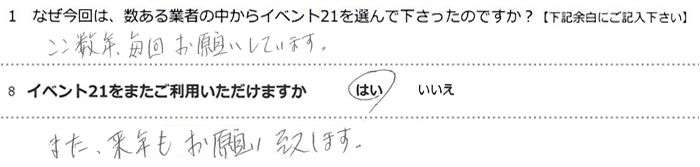 1 なぜ今回は、数ある業者の中からイベント21を選んで下さったのですか？【下記余白にご記入下さい】
ここ数年、毎回お願いしています。
8 イベント21をまたご利用いただけますか はい いいえ
また、来年もお願い致します。